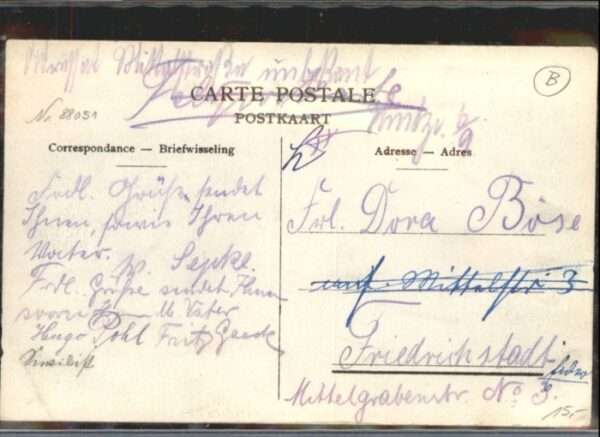 Mittelstraße unbekannt
Nr. 88031
B
CARTE POSTALE
POSTKAART
Correspondance — Briefwisseling
Adresse — Adres
Frdl. Grüße sendet
Ihnen, sowie Ihren
Vater.
W. Sepke.
Frdl. Grüße sendet Ihnen
sowie Ihr Vater
Hugo Pohl Fritz Gaede
Frl. Dora Böse
Mittelstr 3
Friedrichstadt
Mittelgrabenstr. No 3.
15,-